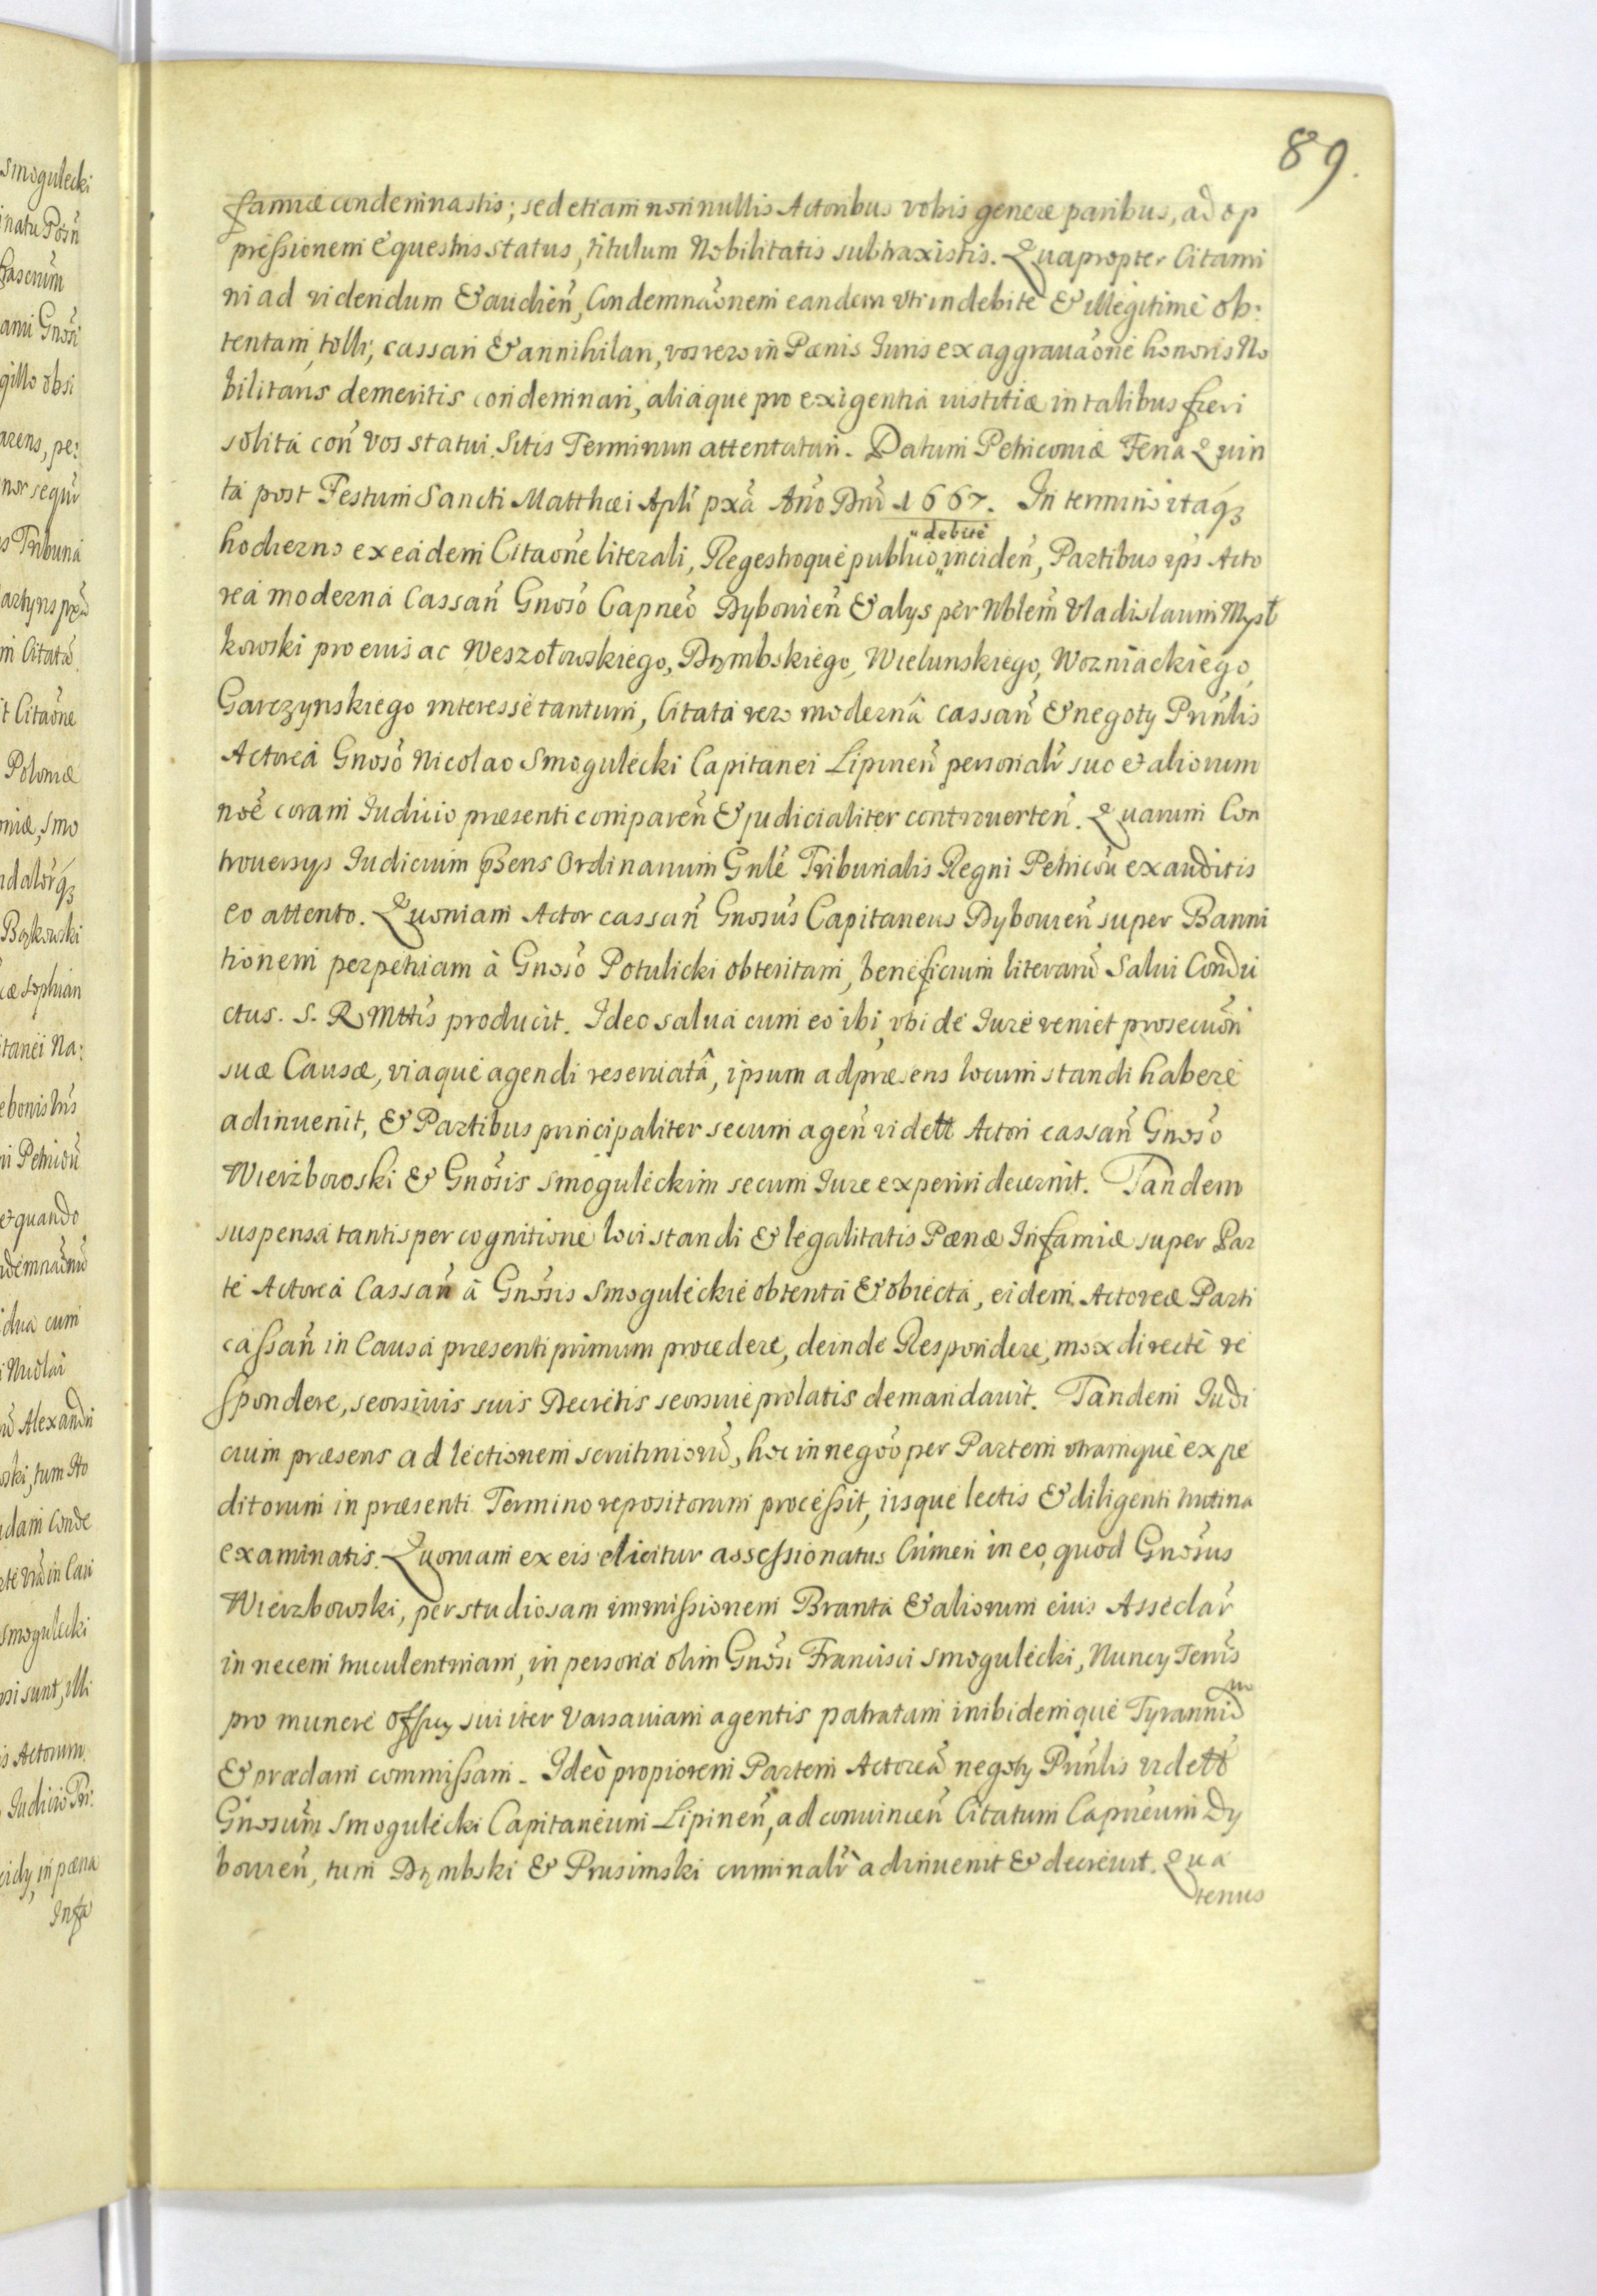 89.
famiæ condemnastis; sed etiam nonnullis Actoribus vobis genere paribus, ad op
pressionem Equestris status, titulum Nobilitatis subtraxistis. Quapropter Citami
ni ad videndum & audień, Condemnaõnem eandem uti indebite & illegitime ob:
tentam, tolli, cassari & annihilari, vos vero in Pænis Juris ex aggrauaõne honoris No
bilitaris demeritis condemnari, aliaque pro exigentia iustitiæ in talibus fieri
solita coñ vos statui. Sitis Terminum attentaturi. Datum Petricouiæ Feria Quin
ta post Festum Sancti Matthæi Apli pxã Año Dni 1667. In termino itaqꝫ
hodierno ex eadem Citaõne literali, Regestroque publico "debite" inciden̄, Partibus ip̃s Acto
rea moderna Cassan̄ Gnoso Capneõ Dybouien̄ & alys per Nblem̄ Vladislaum Mysł
kowski pro eius ac Weszołowskiego, Dąmbskiego, Wielunskiego, Wozniackiego,
Garczynskiego interesse tantum, Citata vero modernâ cassan̄ & negoty Prinlis
Actorea Gnoso Nicolao Smogulecki Capitanei Lipinen̄ personalr̃ suo et aliorum
noẽ coram Iudicio præsenti comparen̄ & judicialiter controuerten̄. Quarum Con
trouersys Iudicium p̃sens Ordinarium Gnle Tribunalis Regni Petricou exauditis
eo attento. Quoniam Actor cassan̄ Gnosus Capitaneus Dybouien̄ super Banni
tionem perpetuam à Gnoso Potulicki obtentam, beneficium literarũ Salui Condu
ctus. S. R Mttis producit. Ideo salua cum eo ibi, ubi de Iure veniet prosecuõn
suæ Causæ, viaque agendi reseruatâ, ipsum ad præsens locum standi habere
adinuenit, & Partibus principaliter secum agen̄ vidett Actori cassan̄ Gnoso
Wierzbowski & Gnosis Smogulęckim secum Iure experiri decernit. Tandem
suspensa tantisper cognitione loci standi & legalitatis Pænæ Infamiæ super Par
te Actorea Cassan̄ à Gnosis Smogulęckie obtenta & obiecta, eidem Actoreæ Parti
cassan̄ in Causa præsenti primum procedere, deinde Respondere, mox directe re
spondere, seorsiuis suis Decretis seorsiue prolatis demandauit. Tandem Iudi
cium præsens ad lectionem scrutiniorũ, hoc in negoõ per Partem utramque expe
ditorum in præsenti Termino repositorum processit, iisque lectis & diligenti trutina
examinatis. Quoniam ex eis elicitur assessionatus Crimen in eo, quod Gnosus
Wierzbowski, per studiosam immissionem Branta & aliorum eius Assedar̃
in necem truculentmam, in persona olim Gnosi Francisci Smogulecki, Nuncy Terris
pro munere officy sui iter Varsauiam agentis patratam inibidemque Tyrannidm
& prædam commissam. Ideò propiorem Partem Actoreã negoty Prinlis vidett
Gnosum̃ Smogulecki Capitaneum Lipinen̄, ad conuincen̄ Citatum Capneum Dy
bouien̄, tum Dąmbski & Prusimski criminalr̃ adinuenit & decreuit. Qua
tenus